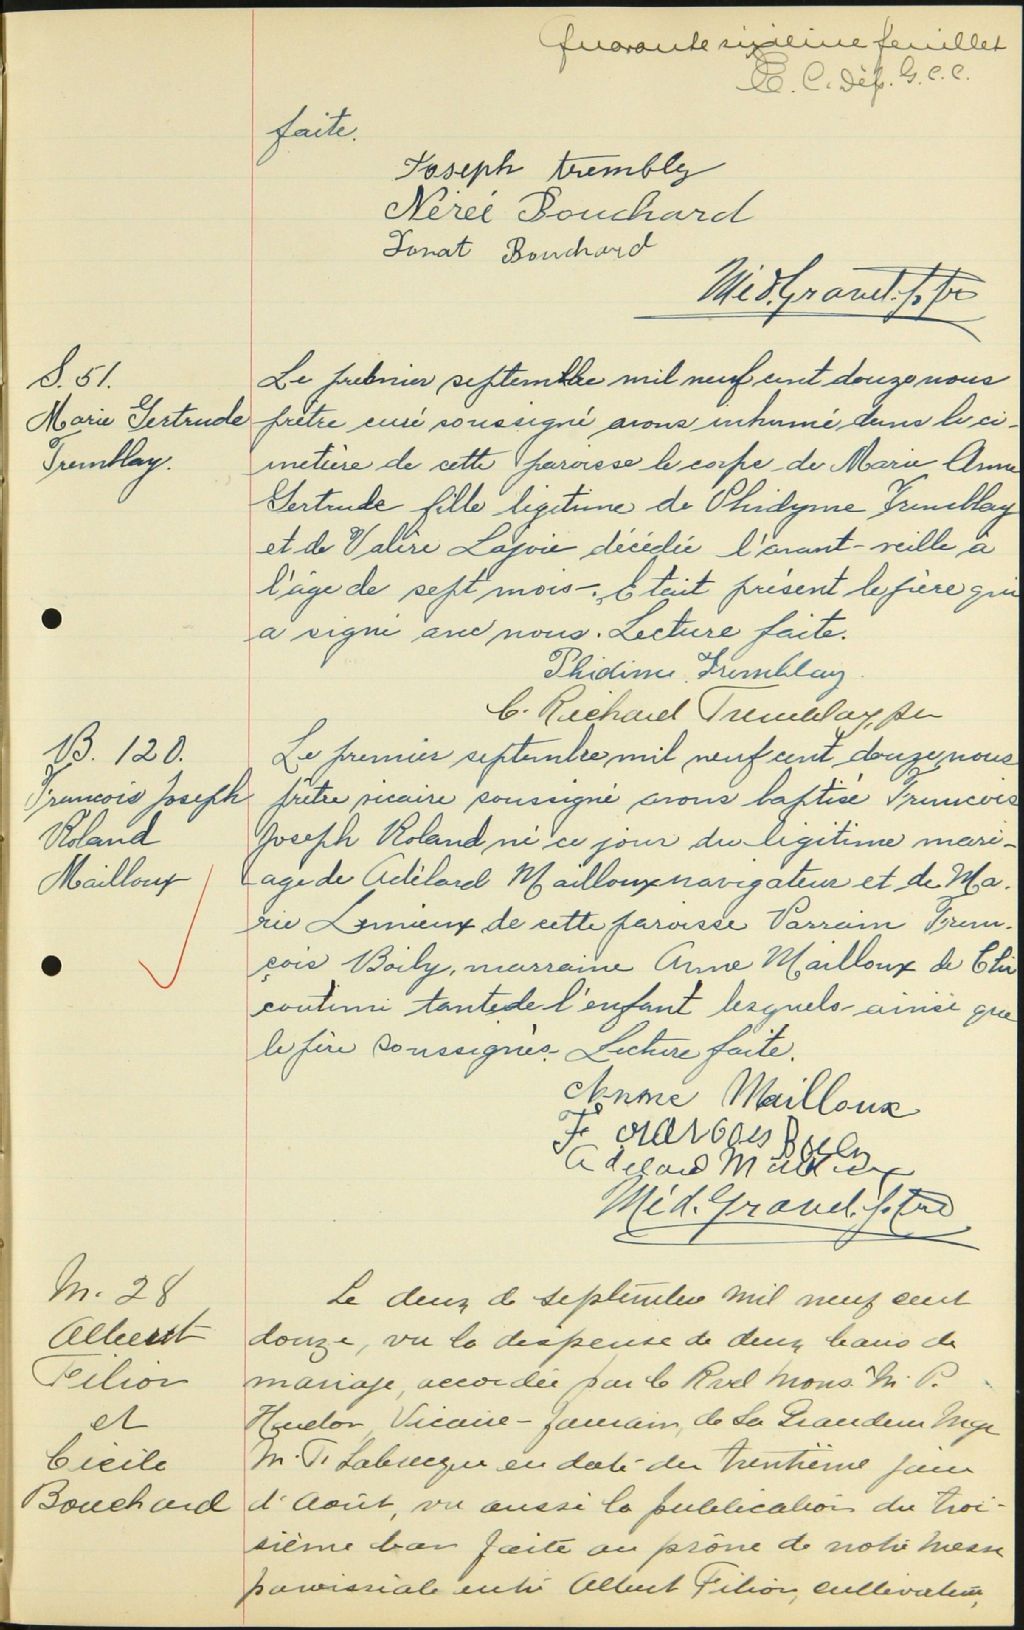 Quarante sixième feuillet
E. C. Dép. G. C. C.
faite.
Joseph trembly
Néreé Bouchard
Donat Bouchard
Méd. Gravel. ptre
S. 51.
Marie Gertrude
Tremblay.
Le premier septembre mil neuf cent douze nous
prêtre curé soussigné avons inhumé dans le ci-
metière de cette paroisse le corps de Marie Anne
Gertrude fille légitime de Phidyme Tremblay
et de Valère Lajoie décédée l'avant-veille à
l'âge de sept mois-. Etait présent le père qui
a signé avec nous. Lecture faite.
Phidime Tremblay
C. Richard Tremblay, ptr
B. 120.
Francois Joseph
Roland
Mailloux
Le premier septembre mil neuf cent douze nous
prêtre vicaire soussigné avons baptisé Francois
Joseph Roland né ce jour du légitime mari-
age de Adélard Mailloux navigateur et de Ma-
rie Lemieux de cette paroisse Parrain Fran-
çois Boily, marraine Anne Mailloux de Chi
coutimi tante de l'enfant lesquels ainsi que
le père soussignés. Lecture faite.
Anne Mailloux
Francois Boily
Adelard Mailloux
Méd. Gravel. ptre
M. 28
Albert
Filion
et
Cécile
Bouchard
Le deux de septembre mil neuf cent
douze, vu la dispense de deux bans de
mariage, accordée par le Rvd Mons. M. P.
Hudon, Vicaire-forain, de Sa Grandeur Mgr
M. T. Labrecque en date du trentième jour
d'Août, vu aussi la publication du troi-
sième ban faite au prône de notre messe
paroissiale entre Albert Filion, cultivateur,